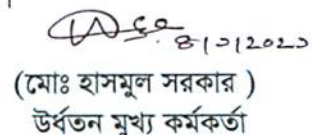 8|১|2020
(মোঃ হাসমুল সরকার )
উর্ধতন মুখ্য কর্মকর্তা